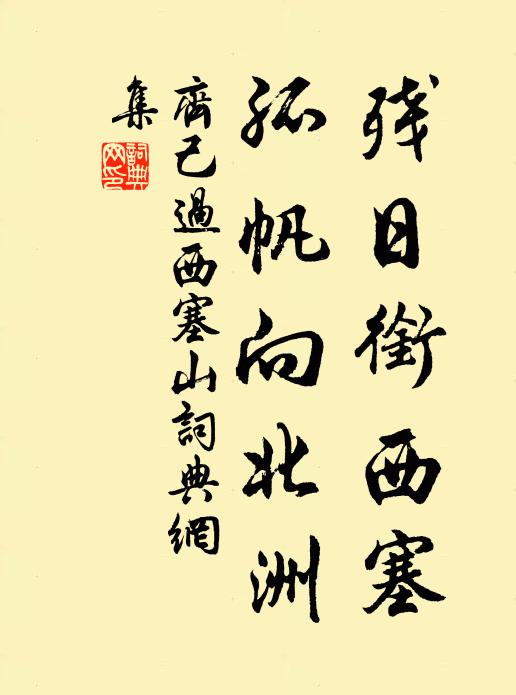 残日衔西塞
孤帆向北洲
齊己過西塞山詞典網
集
詞典
网印